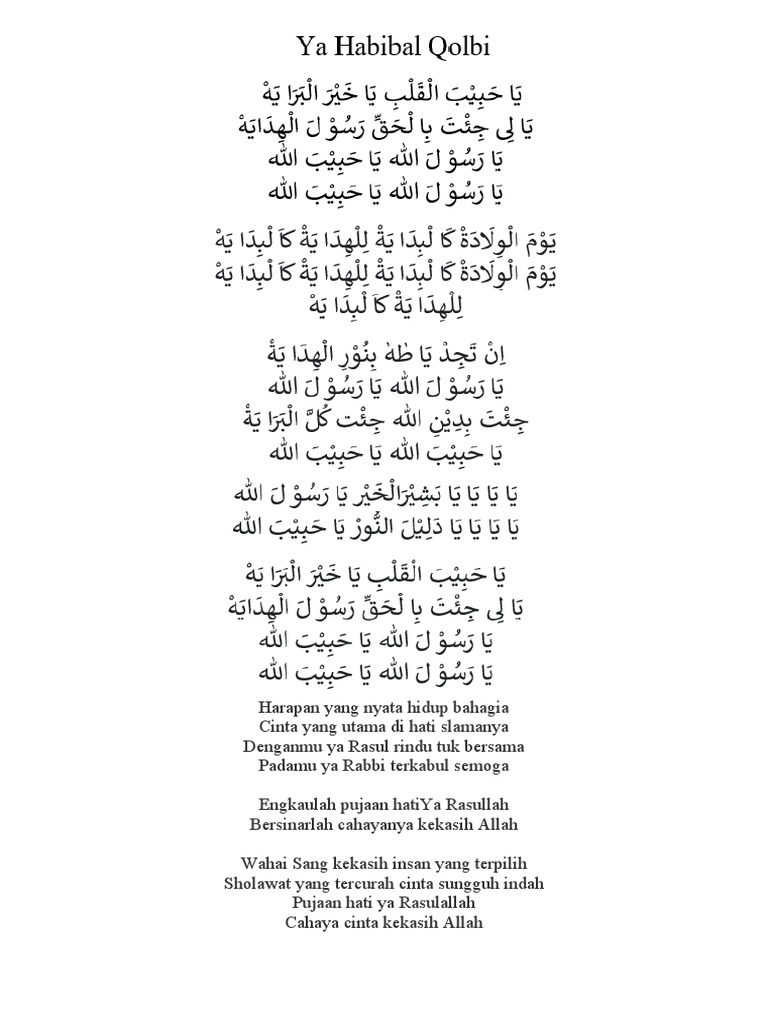 Ya Habibal Qolbi
يَا حَبِيْبَ الْقَلْبِ يَا خَيْرَ الْبَرَا يَهْ
يَا لِى جِئْتَ بِا لْحَقِّ رَسُوْ لَ الْهِدَايَهْ
يَا رَسُوْ لَ الله يَا حَبِيْبَ الله
يَا رَسُوْ لَ الله يَا حَبِيْبَ الله
يَوْمَ الْوِلَادَةْ كَا لْبِدَا يَةْ لِلْهِدَا يَةْ كَا لْبِدَا يَهْ
يَوْمَ الْوِلَادَةْ كَا لْبِدَا يَةْ لِلْهِدَا يَةْ كَا لْبِدَا يَهْ
لِلْهِدَا يَةْ كَا لْبِدَا يَهْ
اِنْ تَجِدْ يَا طٰهٰ بِنُوْرِ الْهِدَا يَةْ
يَا رَسُوْ لَ الله يَا رَسُوْ لَ الله
جِئْتَ بِدِيْنِ الله جِئْت كُلَّ الْبَرَا يَةْ
يَا حَبِيْبَ الله يَا حَبِيْبَ الله
يَا يَا يَا يَا بَشِيْرَالْخَيْر يَا رَسُوْ لَ الله
يَا يَا يَا يَا دَلِيْلَ النُّورْ يَا حَبِيْبَ الله
يَا حَبِيْبَ الْقَلْبِ يَا خَيْرَ الْبَرَا يَهْ
يَا لِى جِئْتَ بِا لْحَقِّ رَسُوْ لَ الْهِدَايَهْ
يَا رَسُوْ لَ الله يَا حَبِيْبَ الله
يَا رَسُوْ لَ الله يَا حَبِيْبَ الله
Harapan yang nyata hidup bahagia
Cinta yang utama di hati slamanya
Denganmu ya Rasul rindu tuk bersama
Padamu ya Rabbi terkabul semoga
Engkaulah pujaan hatiYa Rasullah
Bersinarlah cahayanya kekasih Allah
Wahai Sang kekasih insan yang terpilih
Sholawat yang tercurah cinta sungguh indah
Pujaan hati ya Rasulallah
Cahaya cinta kekasih Allah